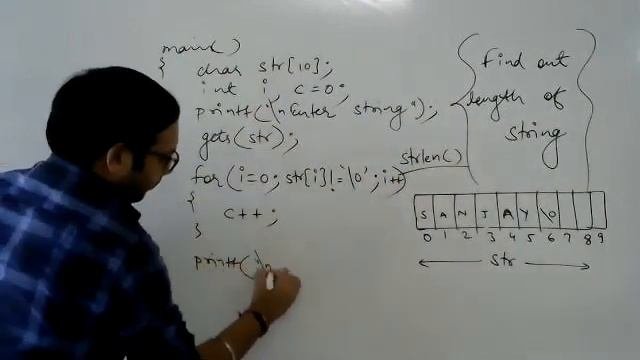 main()
{ char str[10];
int i, c=0;
printf("\nEnter string");
gets(str);
for(i=0; str[i]!='\0'; i++)
{
c++;
}
printf("\n
find out
length of
string
strlen()
S A N J A Y \0
0 1 2 3 4 5 6 7 8 9
str